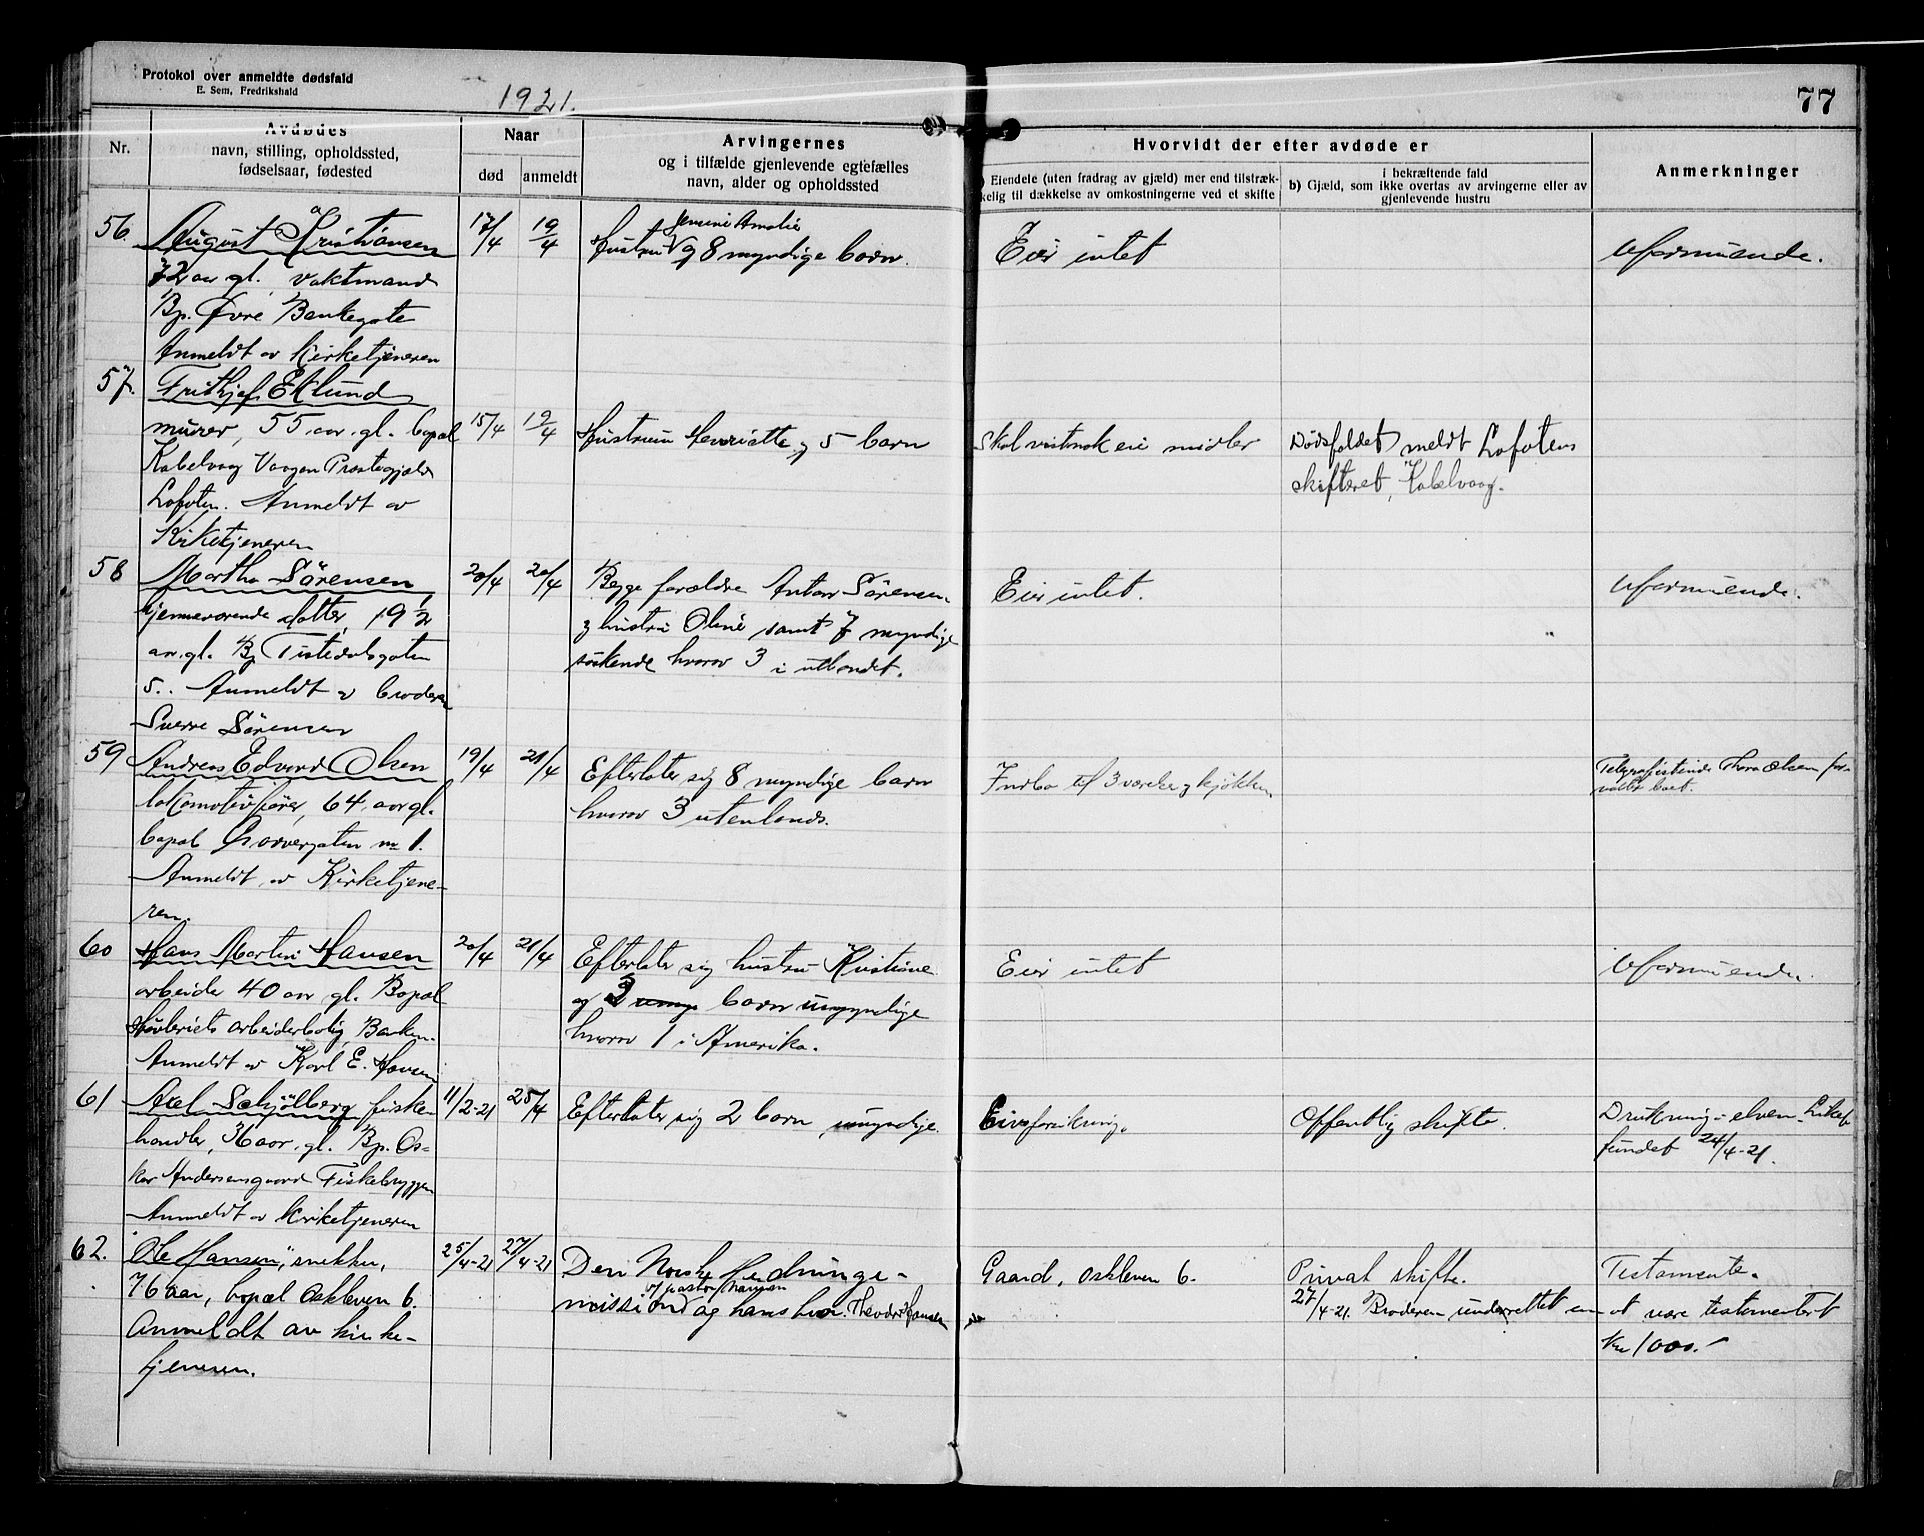 Protokol over anmeldte dødsfald
E. Sem, Fredrikshald
1921.
77
Nr.
Avdødes
navn, stilling, opholdssted,
fødselsaar, fødested
Naar
død
anmeldt
Arvingernes
og i tilfælde gjenlevende egtefælles
navn, alder og opholdssted
Hvorvidt der efter avdøde er
Eiendele (uten fradrag av gjæld) mer end tilstræk-
kelig til dækkelse av omkostningerne ved et skifte
i bekræftende fald
b) Gjæld, som ikke overtas av arvingerne eller av
gjenlevende hustru
Anmerkninger
56.
August Kristiansen
72 aar gl. vaktmand
Bp. Øvre Bankegate
Anmeldt av Kirketjeneren
17/4
19/4
Jensine Amalie
Hustru og 8 myndige barn.
Eier intet
Uformuende.
57.
Frithjof Eklund
murer, 55 aar gl. bopæl
Kabelvaag Vaagan Prestegjæld
Lofoten. Anmeldt av
Kirketjeneren
15/4
19/4
Hustru Henriette og 5 barn
Skal vistnok eie midler
Dødsfaldet meldt Lofotens
skifteret, Kabelvaag.
58
Martha Sørensen
hjemmeværende datter, 19 1/2
aar gl. Bp Tistedalsgaten
5.. Anmeldt av broderen
Sverre Sørensen
20/4
20/4
Begge forældre Anton Sørensen
og hustru Oline samt 7 myndige
søskende hvorav 3 i utlandet.
Eier intet.
Uformuende.
59
Andreas Edvard Olsen
lokomotivfører, 64 aar gl.
bopæl Garvergaten nr 1.
Anmeldt av Kirketjene-
ren.
19/4
21/4
Efterlater sig 8 myndige barn
hvorav 3 utenlands.
Indbo til 3 værelser og kjøkken
Telegrafistinde Thora Olsen for-
valter boet.
60
Hans Martin Hansen
arbeider 40 aar gl. Bopæl
Høvleriets arbeiderbolig, Banken.
Anmeldt av Karl E. Hansen
20/4
21/4
Efterlater sig hustru Kristiane
og 2 barn umyndige
hvorav 1 i Amerika.
Eier intet
Uformuende.
61
Axel Schjølberg fiske-
handler, 36 aar gl. Bp. Os-
kar Andersensgaard Fiskebryggen
Anmeldt av kirketjeneren
11/2-21
25/4
Efterlater sig 2 barn, umyndige.
Livsforsikring.
Offentlig skifte.
Drukning i elven. Liket
fundet 24/4-21.
62.
Ole Hansen, snekker,
76 aar, bopæl Oskleven 6.
Anmeldt av kirke-
tjeneren.
25/4-21
27/4-21
Den Norske Hedninge-
v/ pastor Hansen
mission og hans bror Theodor Hansen
Gaard, Oskleven 6.
Privat skifte.
27/4-21. Broderen underrettet om
Testamente.
at være testamentert
Kr 1000.-